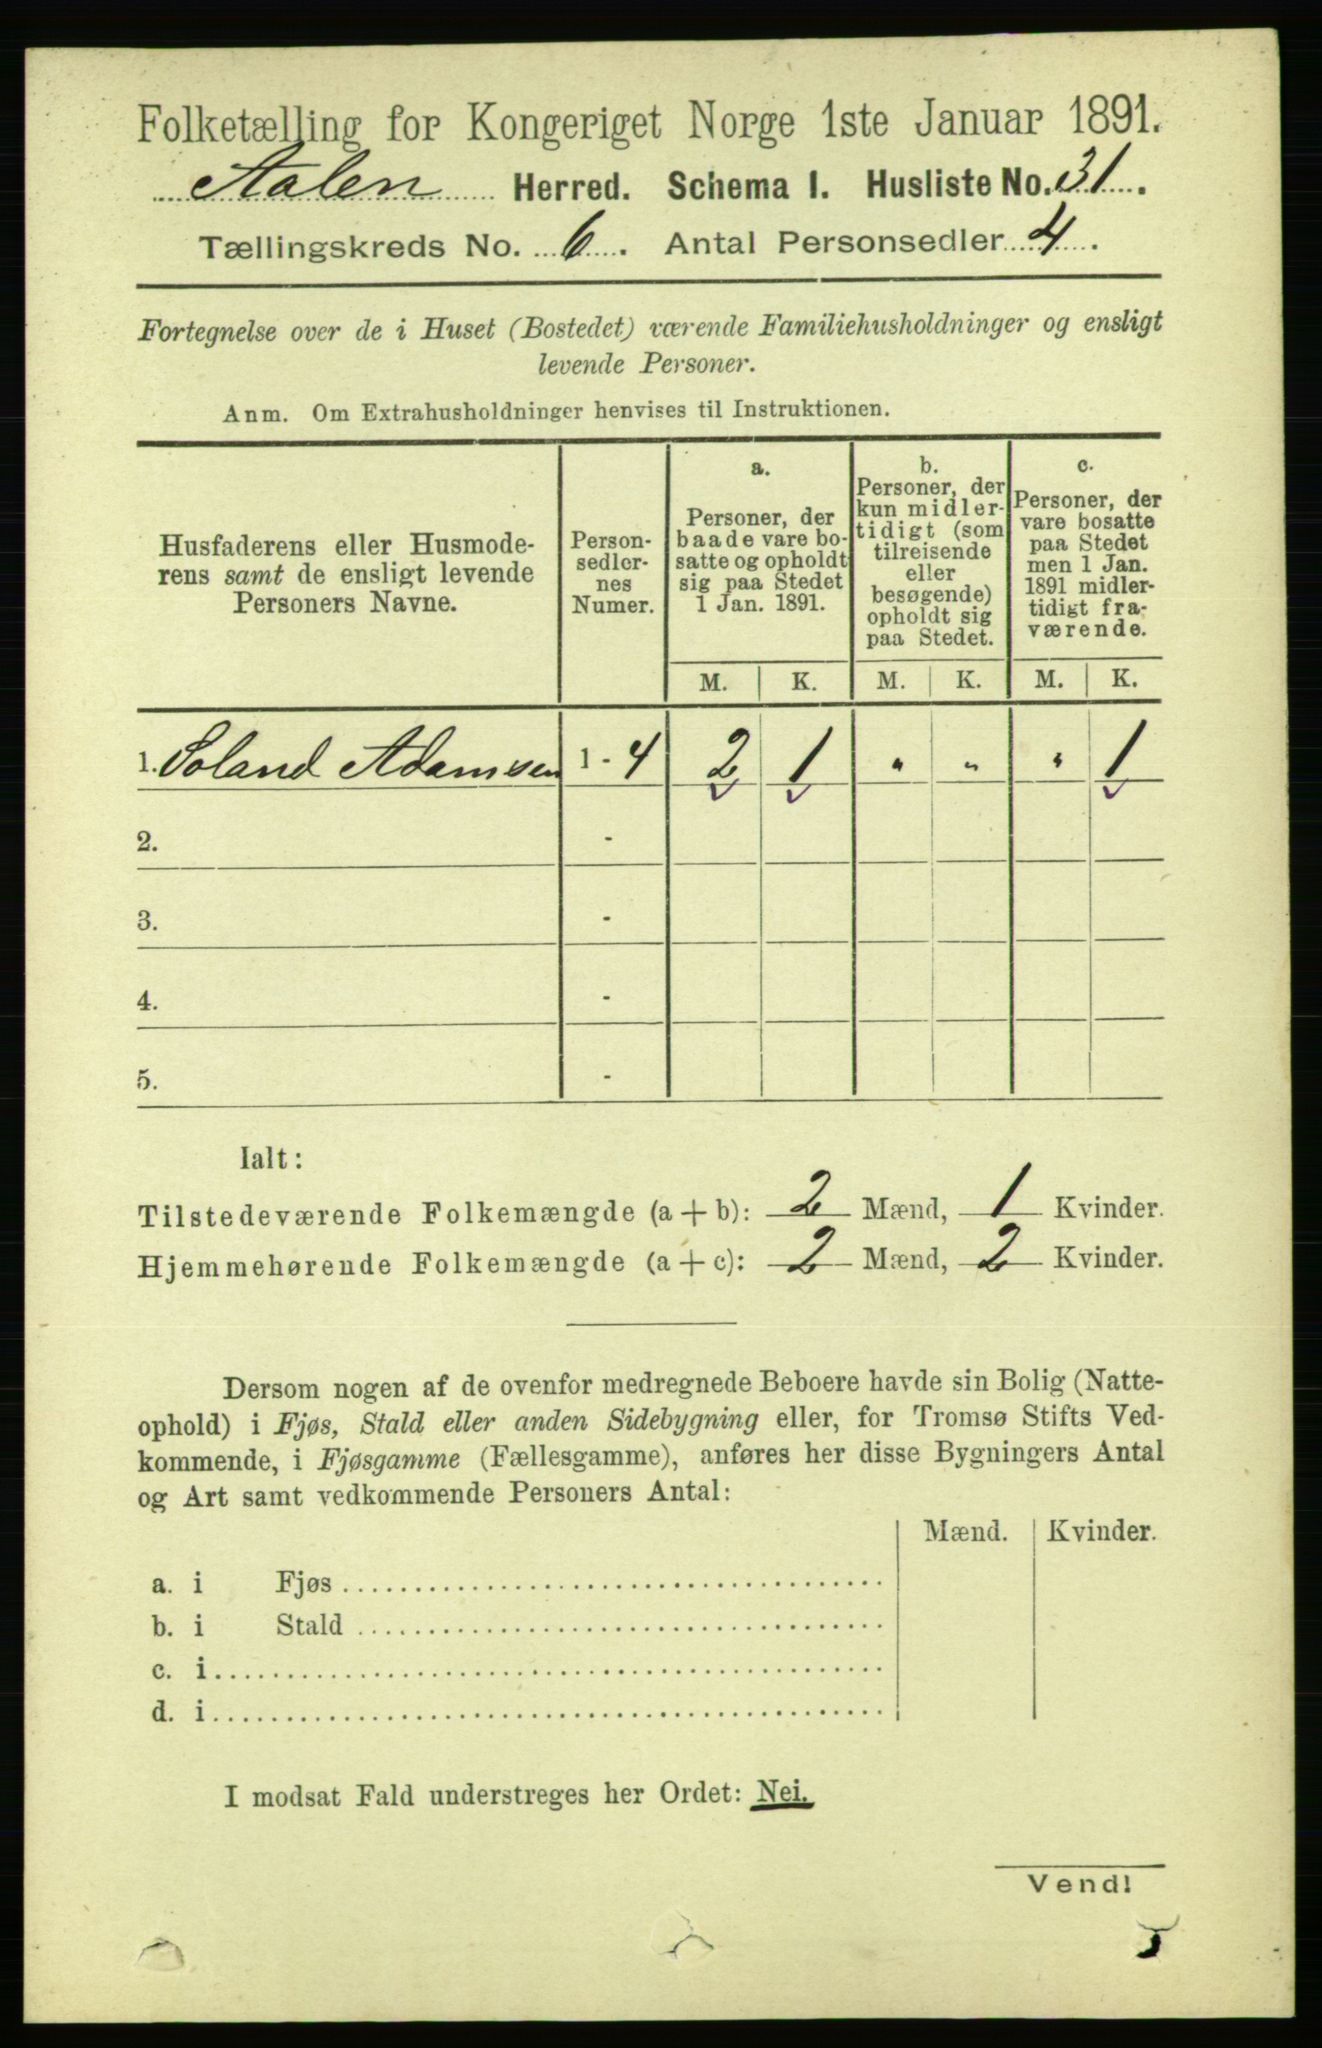 Folketælling for Kongeriget Norge 1ste Januar 1891.
Aalen Herred. Schema I. Husliste No. 31.
Tællingskreds No. 6. Antal Personsedler 4.
Fortegnelse over de i Huset (Bostedet) værende Familiehusholdninger og ensligt
levende Personer.
Anm. Om Extrahusholdninger henvises til Instruktionen.
Husfaderens eller Husmode-
rens samt de ensligt levende
Personers Navne.
Person-
sedler-
nes
Numer.
a.
Personer, der
baade vare bo-
satte og opholdt
sig paa Stedet
1 Jan. 1891.
b.
Personer, der
kun midler-
tidigt (som
tilreisende
eller
besøgende)
opholdt sig
paa Stedet.
c.
Personer, der
vare bosatte
paa Stedet
men 1 Jan.
1891 midler-
tidigt fra-
værende.
M. K. M. K. M. K.
1. Soland Adamsen 1 - 4 2 1 " " " 1
2. -
3. -
4. -
5. -
Ialt:
Tilstedeværende Folkemængde (a + b): 2 Mænd, 1 Kvinder.
Hjemmehørende Folkemængde (a + c): 2 Mænd, 2 Kvinder.
Dersom nogen af de ovenfor medregnede Beboere havde sin Bolig (Natte-
ophold) i Fjøs, Stald eller anden Sidebygning eller, for Tromsø Stifts Ved-
kommende, i Fjøsgamme (Fællesgamme), anføres her disse Bygningers Antal
og Art samt vedkommende Personers Antal:
Mænd. Kvinder.
a. i Fjøs
b. i Stald
c. i
d. i
I modsat Fald understreges her Ordet: Nei.
Vend!